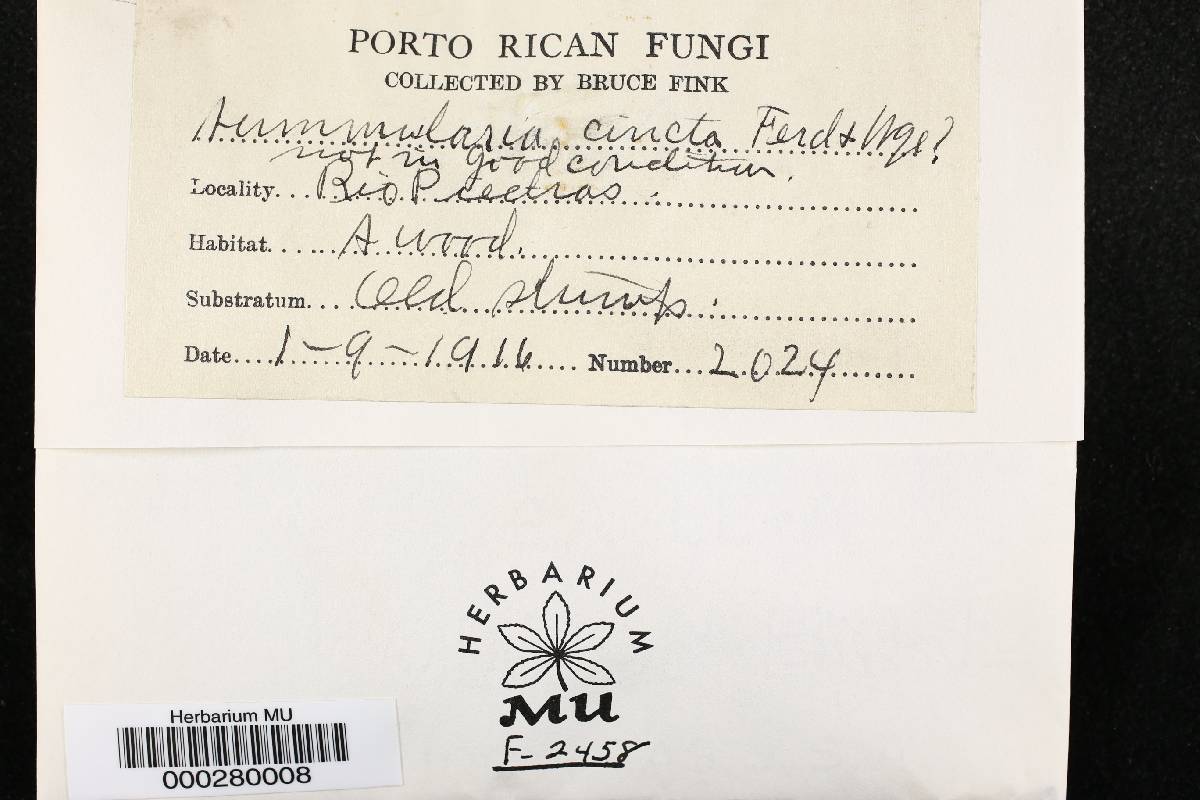 PORTO RICAN FUNGI
COLLECTED BY BRUCE FINK
Nummularia cincta Ferd & Wge?
not in good condition.
Locality... Rio Piedras.
Habitat... A wood.
Substratum... Old stump.
Date... 1-9-1916 Number... 2024
HERBARIUM
MU
F-2458
Herbarium MU
000280008